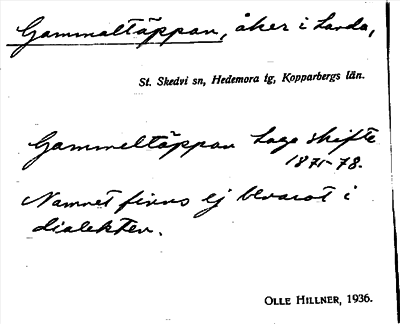 Gammaltäppan, åker i Landa,
St. Skedvi sn, Hedemora tg, Kopparbergs län.
Gammeltäppan Laga skifte
1871-78.
Namnet finns ej bevarat i
dialekten.
OLLE HILLNER, 1936.